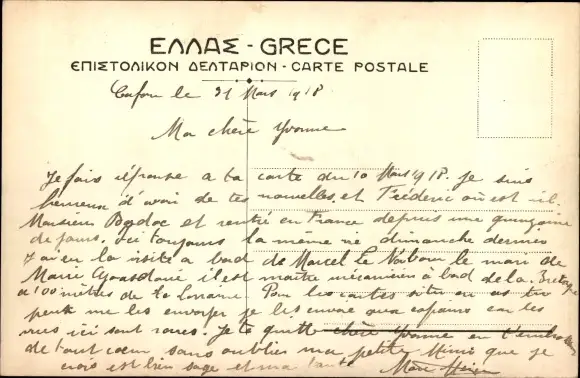 ΕΛΛΑΣ - GRECE
ΕΠΙΣΤΟΛΙΚΟΝ ΔΕΛΤΑΡΙΟΝ - CARTE POSTALE
le 31 Mars 1918
Ma chère Yvonne
Je fais réponse a ta carte du 10 Mars 1918. Je suis
heureux d'avoir de tes nouvelles, et Frédéric où est-il.
Monsieur et rentré en France depuis une quinzaine
de jours, Ici toujours la même vie dimanche dernier
J'ai eu la visite a bord de Marcel le mari de
Marie il est maitre mécanicien à bord de la Bretagne
a 100 mètres de la Lorraine Pour les cartes si tu en as trop
peut me les envoyer je les envoie aux copains car les
vues ici sont rares. Je te quitte chère Yvonne en
de tout cœur sans oublier ma petite Mimi que je
crois est bien sage et ma tante